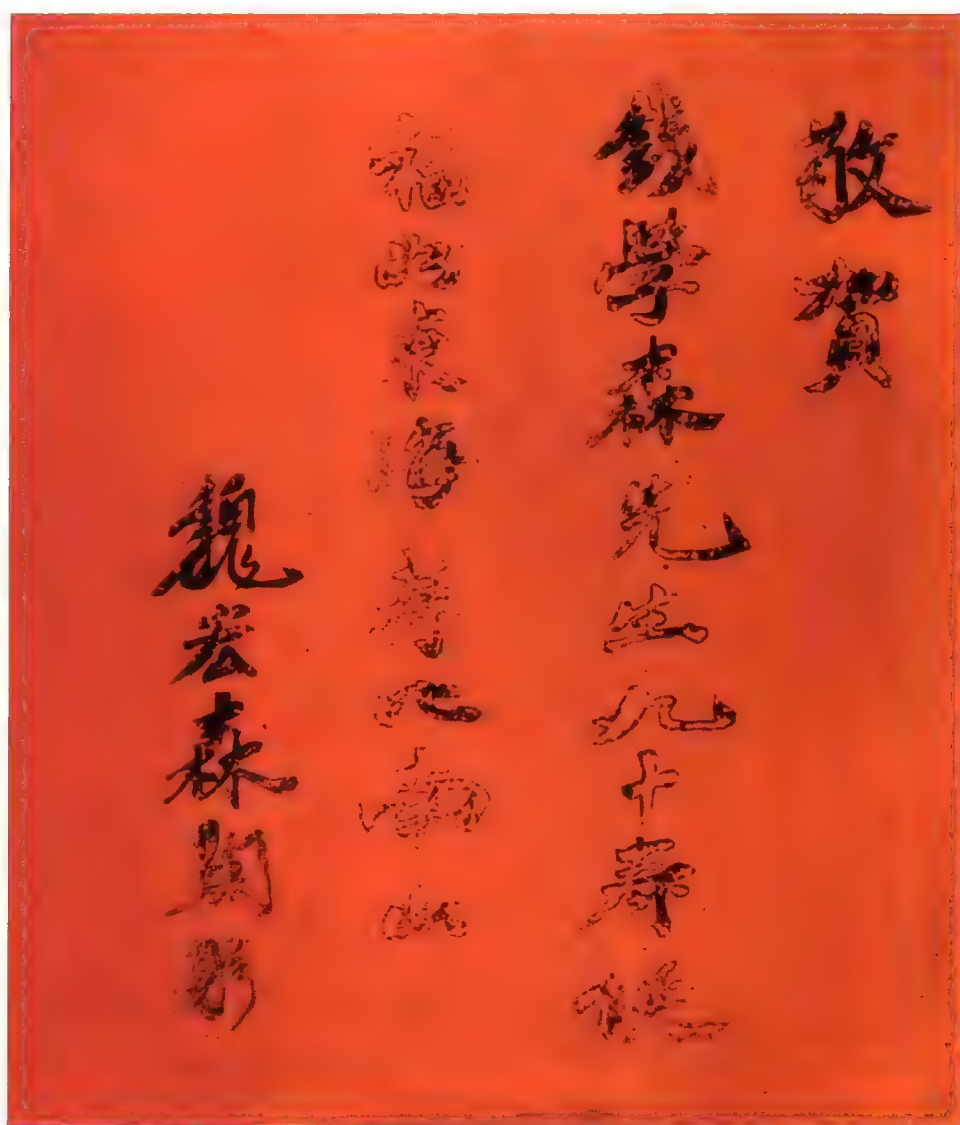 敬賀
錢學森先生九十寿誕
福如東海寿比南山
魏宏森